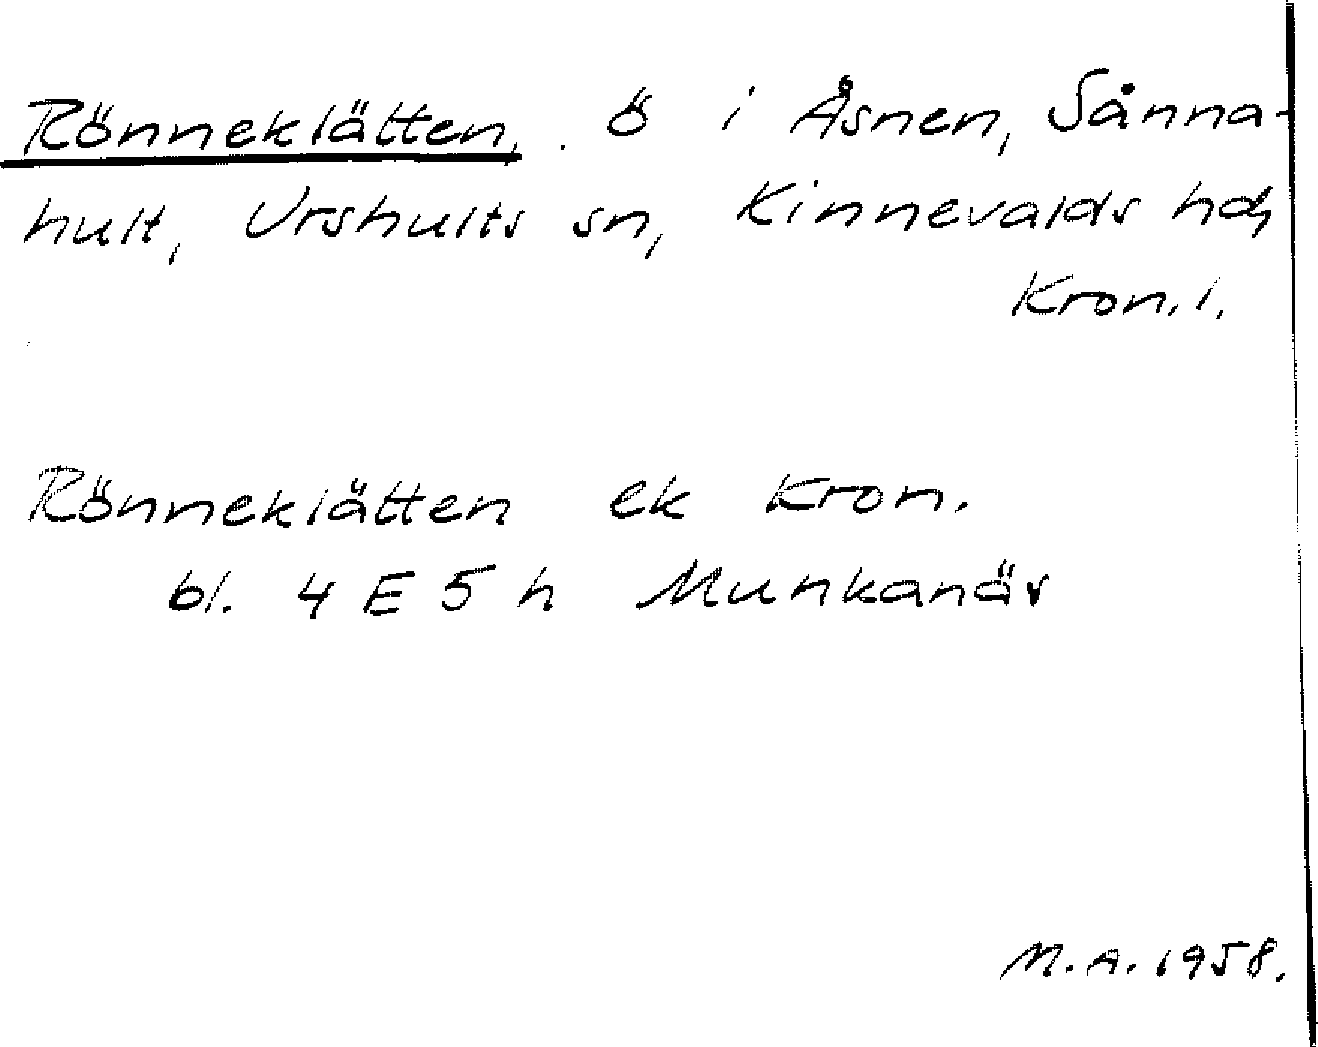 Rönneklätten, ö i Åsnen, Sånna-
hult, Urshults sn, Kinnevalds hd,
Kron. l.
Rönneklätten ek Kron.
bl. 4 E 5 h Munkanäs
M.A. 1958.